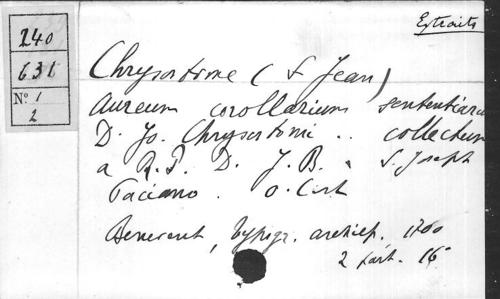 Extraits
240
631
N° 1
2
Chrysostome (S Jean)
Aureum corollarium sententiaru
D. Jo. Chrysostomi .. collectum
a R. P. D. J. B. a S. Joseph
Paciano . o. Cist
Benevent, typogr. archiep. 1700
2 part. 16°